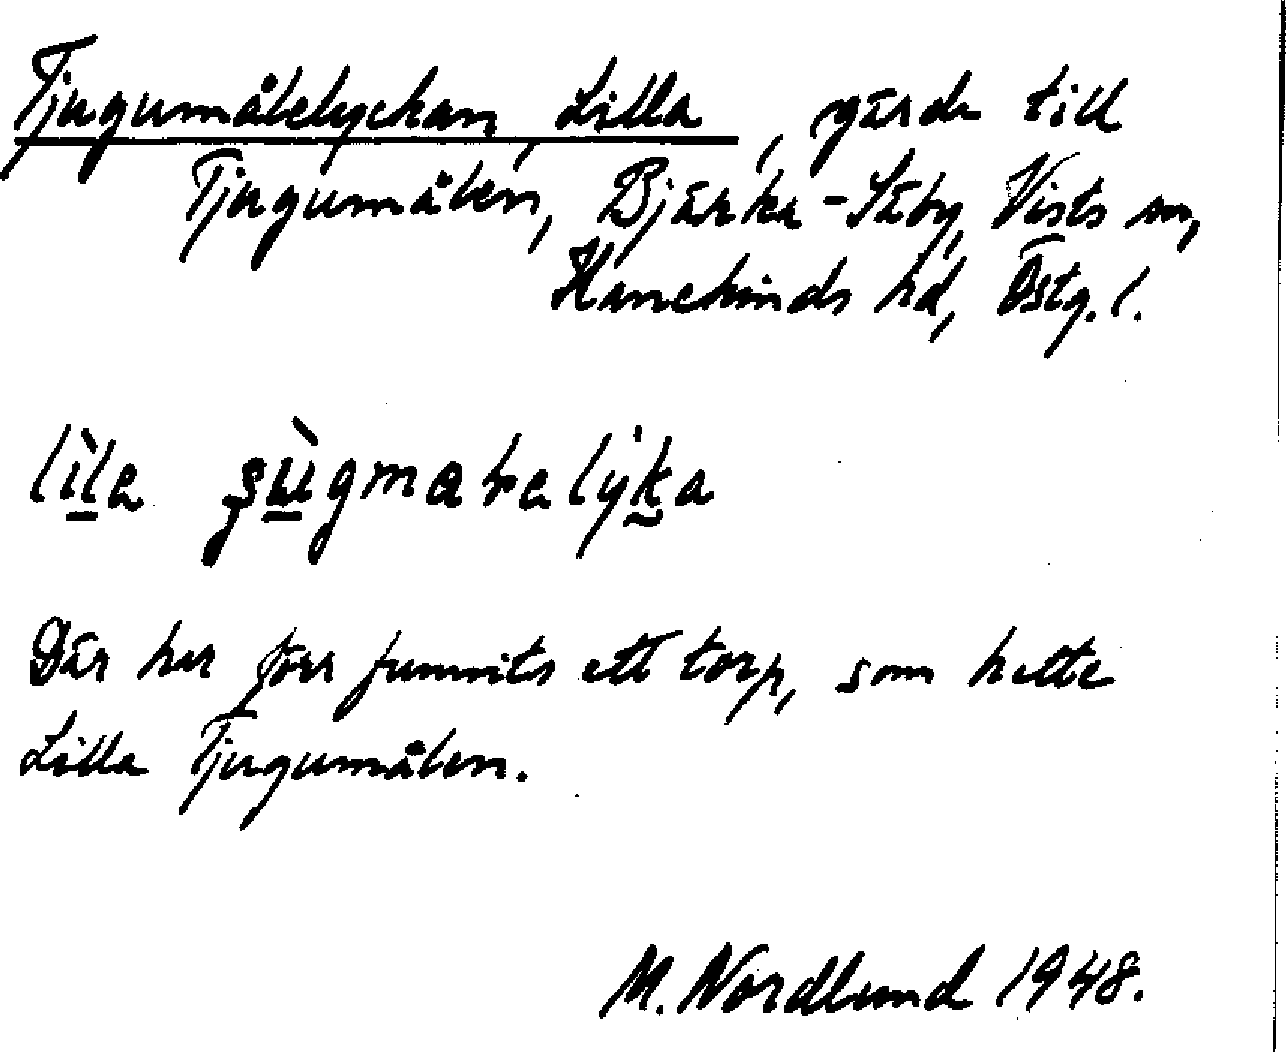 Tjugumålelyckan, Lilla, gärde till
Tjugumålen, Bjärka-Säby, Vists sn,
Hanekinds hd, Östg. l.
Där har förr funnits ett torp, som hette
Lilla Tjugumålen.
M. Nordlund 1948.